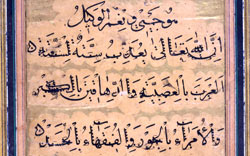 هو حسبي ونعم الوكيل
اِنَّ اللهَ تَعَالى يُعَذِّبُ سِتَّةً بِسِتَّةٍ
العَرَبَ بِالعَصَبِيَّةِ وَالدَّهَاقِينَ بِالكِبْرِ
وَالأُمَراءَ بِالجَورِ وَالفُقَهَاءَ بِالحَسَدِ